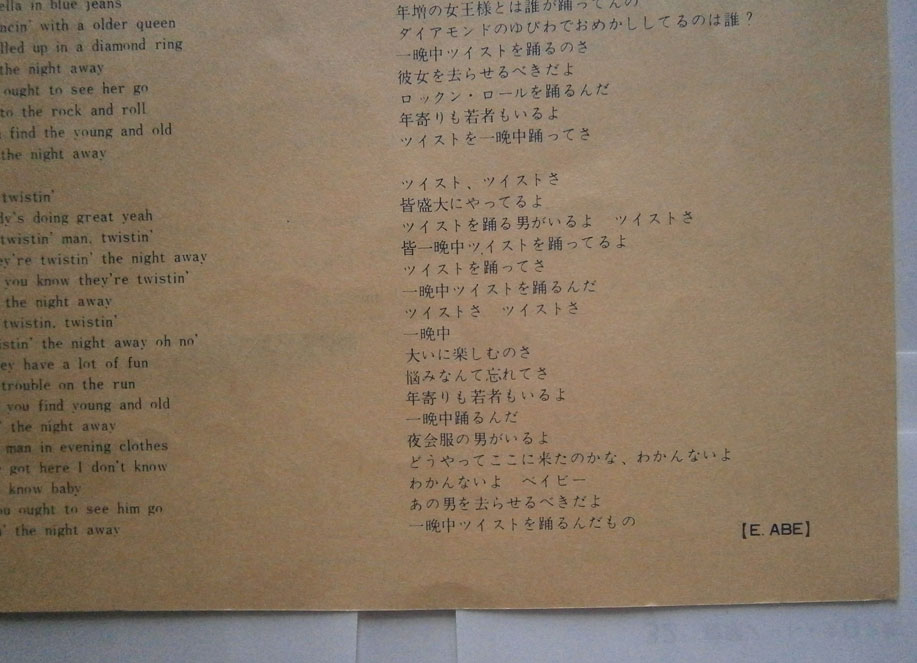 ella in blue jeans
ncin' with a older queen
lled up in a diamond ring
the night away
ought to see her go
to the rock and roll
find the young and old
the night away
twistin'
dy's doing great yeah
twistin' man, twistin'
ey're twistin' the night away
you know they're twistin'
the night away
twistin, twistin'
istin' the night away oh no'
ey have a lot of fun
trouble on the run
you find young and old
' the night away
man in evening clothes
got here I don't know
know baby
ou ought to see him go
n' the night away
年増の女王様とは誰が踊ってんの
ダイアモンドのゆびわでおめかししてるのは誰？
一晩中ツイストを踊るのさ
彼女を去らせるべきだよ
ロックン・ロールを踊るんだ
年寄りも若者もいるよ
ツイストを一晩中踊ってさ
ツイスト、ツイストさ
皆盛大にやってるよ
ツイストを踊る男がいるよ　ツイストさ
皆一晩中ツイストを踊ってるよ
ツイストを踊ってさ
一晩中ツイストを踊るんだ
ツイストさ　ツイストさ
一晩中
大いに楽しむのさ
悩みなんて忘れてさ
年寄りも若者もいるよ
一晩中踊るんだ
夜会服の男がいるよ
どうやってここに来たのかな、わかんないよ
わかんないよ　ベイビー
あの男を去らせるべきだよ
一晩中ツイストを踊るんだもの
【E. ABE】